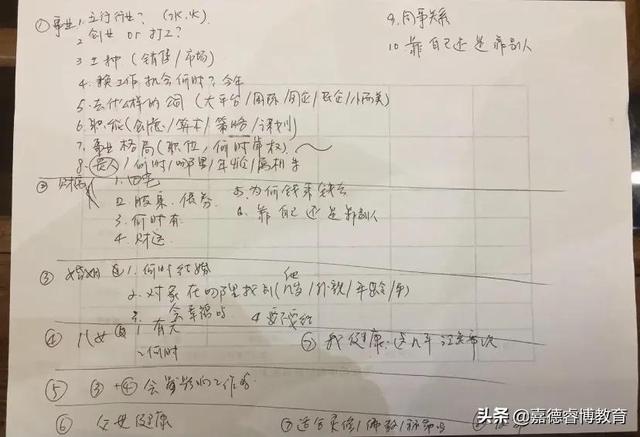 ① 事业 1. 立行行业? (水.火)
2 创业 or 打工?
3 工种 (销售/市场)
4. 换工作机会何时? 今年
5. 去什么样的公司 (大平台/国际/国企/民企/小而美
6. 职能 (创意/算本/策略/计划)
7. 事业格局 (职位, 何时掌权)
8. 贵人/何时/哪里/年龄/属相
9. 同事关系
10 靠自己还是靠别人
② 财
2 股票. 债券
3. 何时有
4. 财运
5. 为何钱来钱去
6. 靠自己还是靠别人
③ 婚姻 1. 何时结婚
2. 对象在哪里找到 (他 外貌/年龄/
3. 会幸福吗
4 要不要结
④ 儿女 1 有无
2 何时
⑤ ③+④ 会影响工作吗
⑥ 父母健康
⑦ 适合灵修/佛教/
头条 @嘉德睿博教育